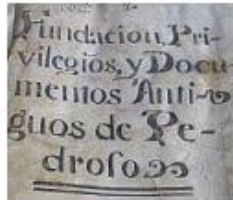 Fundacion, Pri-
vilegios, y Docu-
mentos Anti-
guos de Pe-
droso